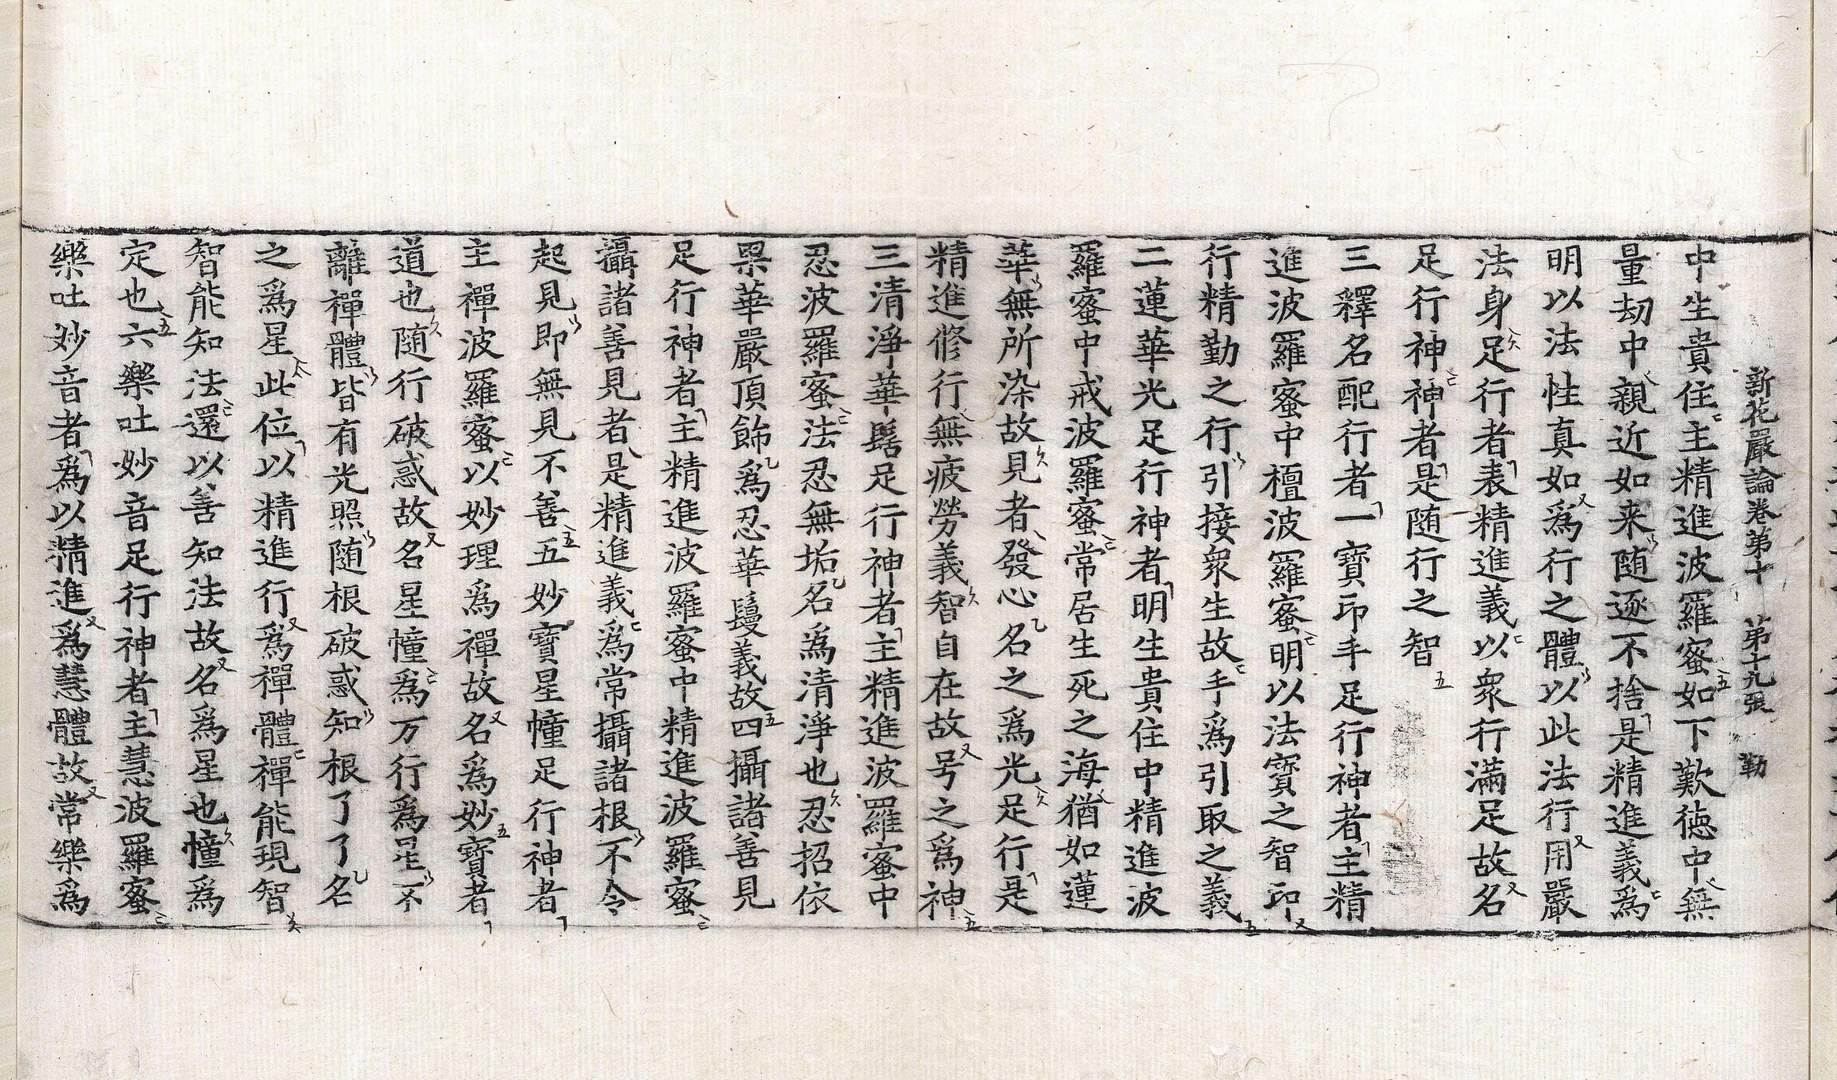 新花嚴論卷第十　第十九張　勤
中生貴住主精進波羅蜜如下歎德中無
量劫中親近如来随逐不捨是精進義爲
明以法性真如爲行之體以此法行用嚴
法身足行者表精進義以衆行滿足故名
足行神神者是随行之智
三釋名配行者一寶印手足行神者主精
進波羅蜜中檀波羅蜜明以法寶之智印
行精勤之行引接衆生故手爲引取之義
二蓮華光足行神者明生貴住中精進波
羅蜜中戒波羅蜜常居生死之海猶如蓮
華無所染故見者發心名之爲光足行是
精進修行無疲勞義智自在故号之爲神
三清淨華髻足行神者主精進波羅蜜中
忍波羅蜜法忍無垢名爲清淨也忍招依
果華嚴頂飾爲忍華鬘義故四攝諸善見
足行神者主精進波羅蜜中精進波羅蜜
攝諸善見者是精進義爲常攝諸根不令
起見即無見不善五妙寶星幢足行神者
主禪波羅蜜以妙理爲禪故名爲妙寶者
道也随行破惑故名星幢爲万行爲星不
離禪體皆有光照随根破惑知根了了名
之爲星此位以精進行爲禪體禪能現智
智能知法還以善知法故名爲星也幢爲
定也六樂吐妙音足行神者主慧波羅蜜
樂吐妙音者爲以精進爲慧體故常樂爲